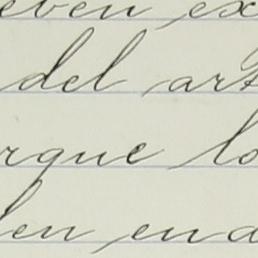 even ex
del art
rque lo
len end